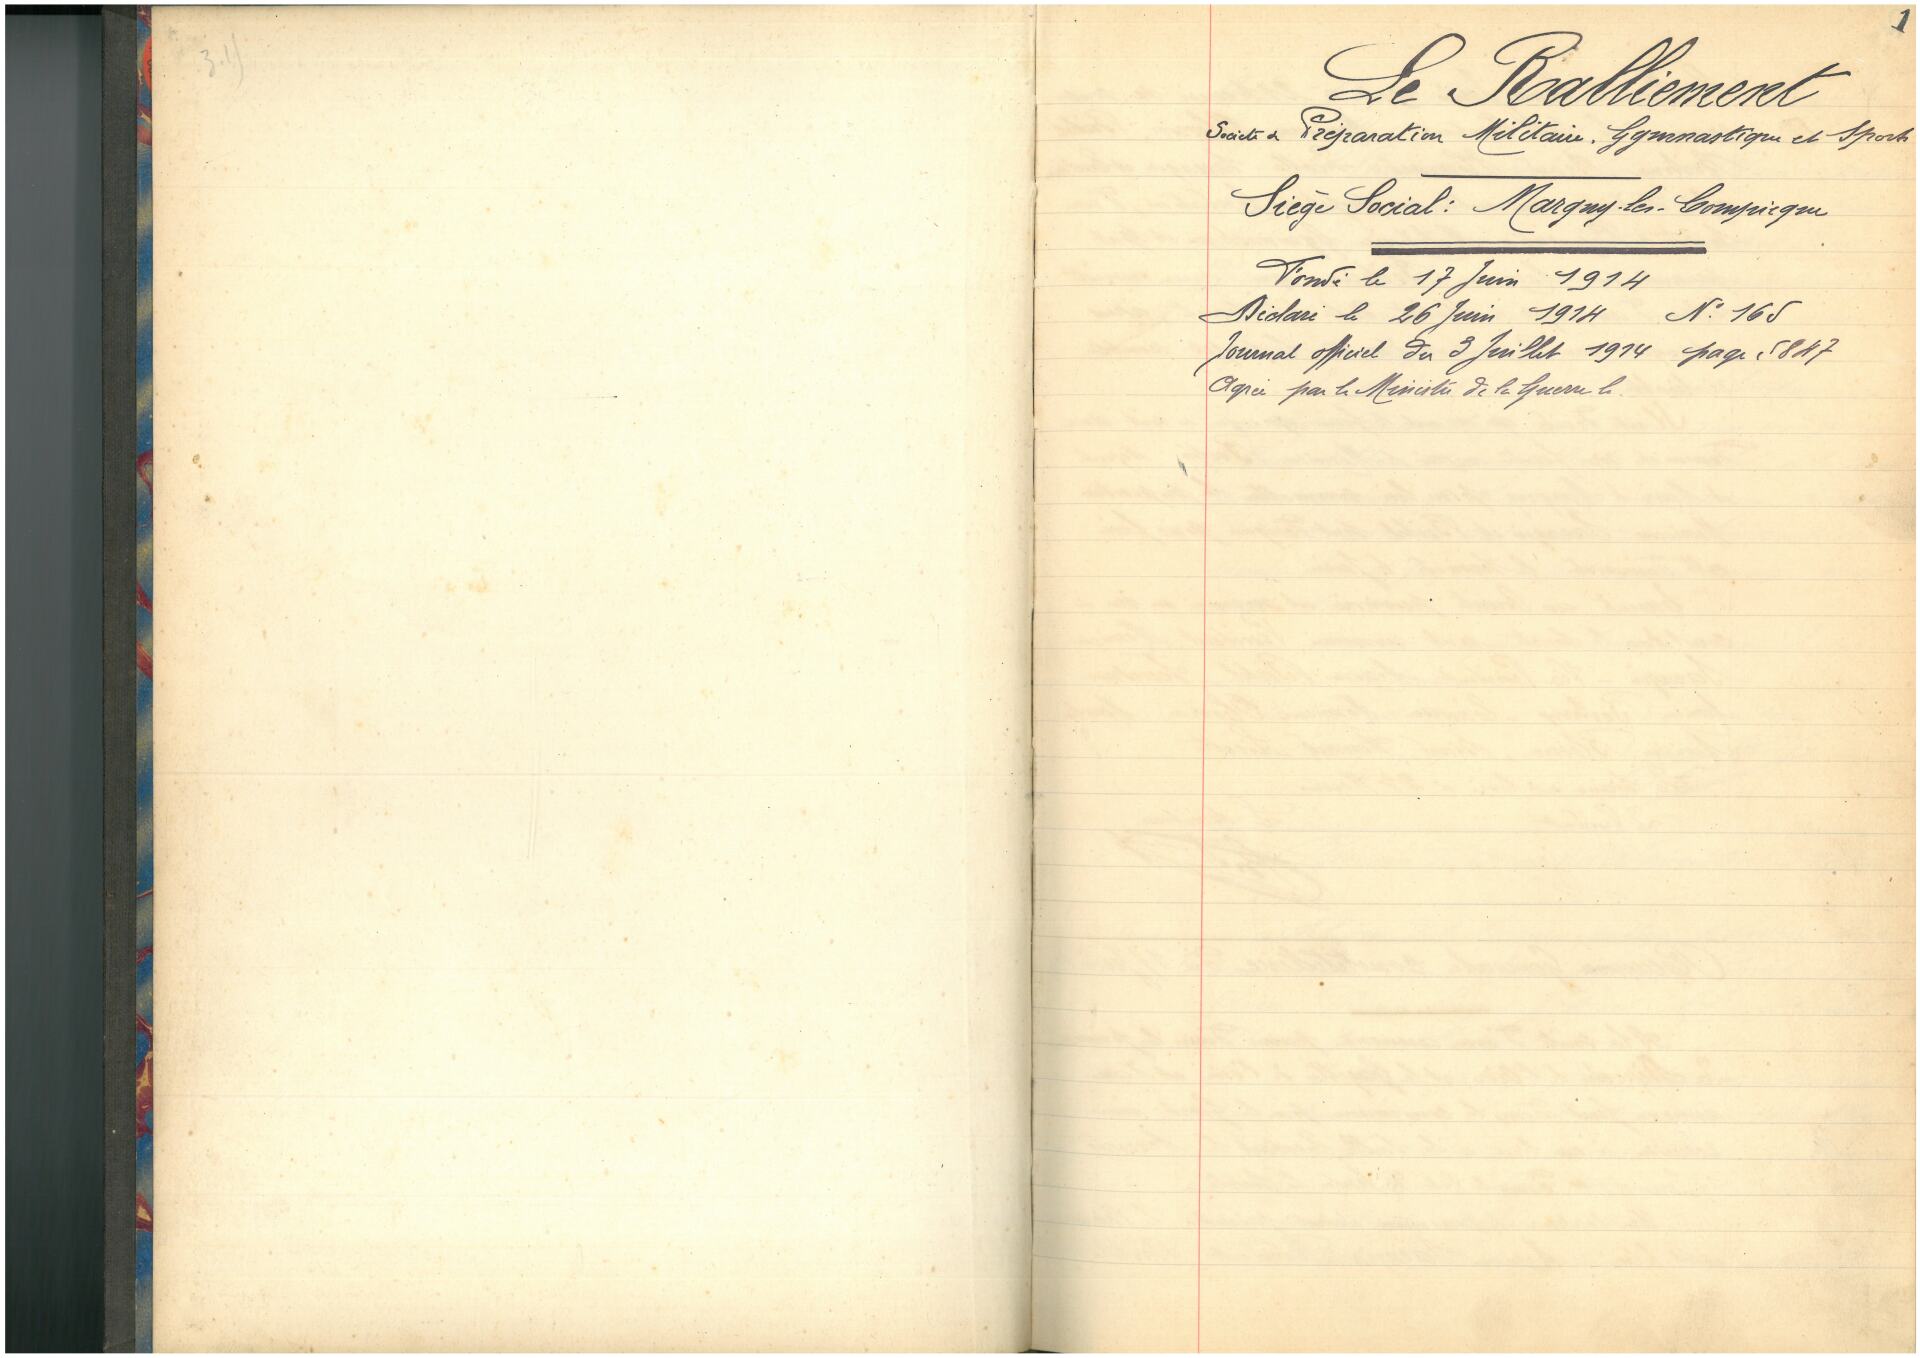 1
Le Ralliement
Société de Préparation Militaire. Gymnastique et Sports
Siège Social: Margny-les-Compiegne
Fondé le 17 Juin 1914
Déclaré le 26 Juin 1914 N° 165
Journal officiel du 3 Juillet 1914 page 5847
Agréé par le Ministère de la Guerre le